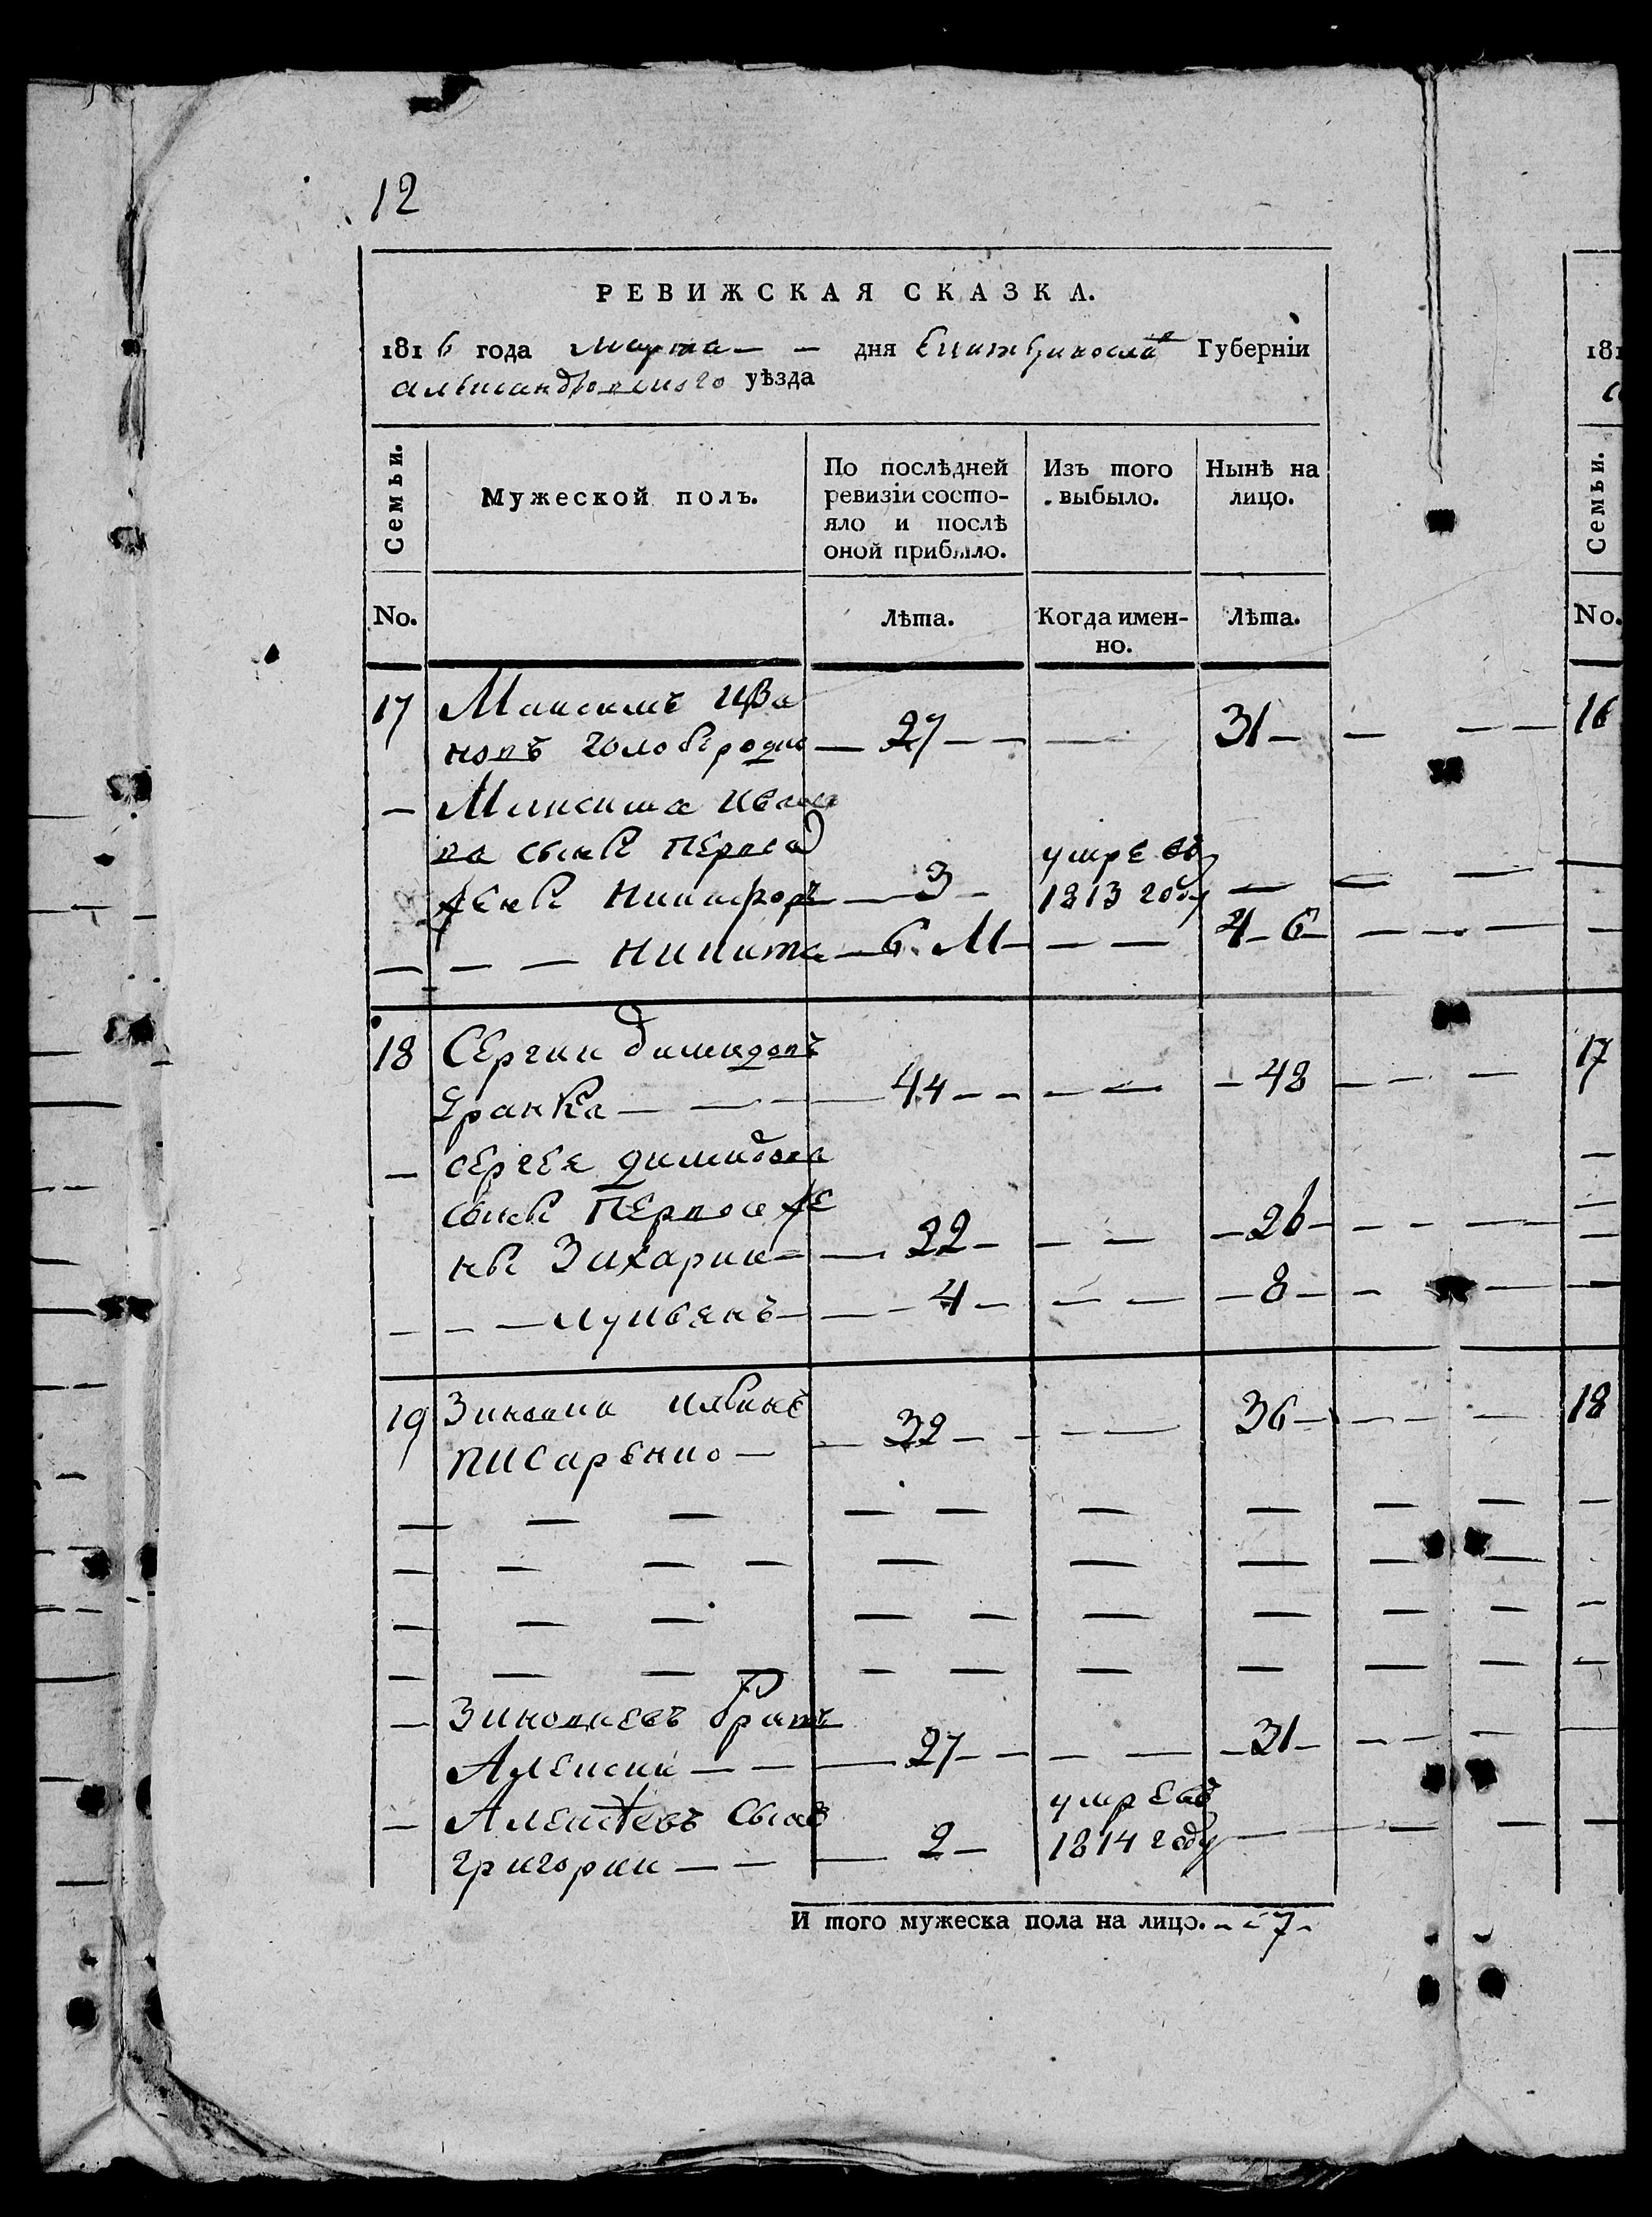 12
РЕВИЖСКАЯ СКАЗКА.
1816 года марта — — дня Екатеринослав Губерніи
александровского уѣзда
Семьи.
Мужеской полъ.
По послѣдней ревизіи состояло и послѣ оной прибыло.
Изъ того выбыло.
Нынѣ на лицо.
No.
Лѣта.
Когда именно.
Лѣта.
17 Максимъ Ива
новъ голобродко — 27 — — 31 —
— Максима Ива
на сыны первой
жены Никифоръ — 3 — умре въ 1813 году —
— — — Никита — 6. М — — — 4 — 6 —
18 Сергии димидовъ
— 44 — — — — — 48
— сергея димидова
сыны первой же
ны Захарии — — 22 — — — — 26 —
— — — лукьянъ — — 4 — — — — 8 —
19 Зиновии
писаренко — — 32 — — — 36 —
— Зиновиевъ братъ
Алексии — — — 27 — — — — — 31 —
— Алексѣевъ сынъ
григории — — — 2 — умре въ 1814 году —
И того мужеска пола на лицо. — 7 —
181
Семьи.
No.
16
17
18